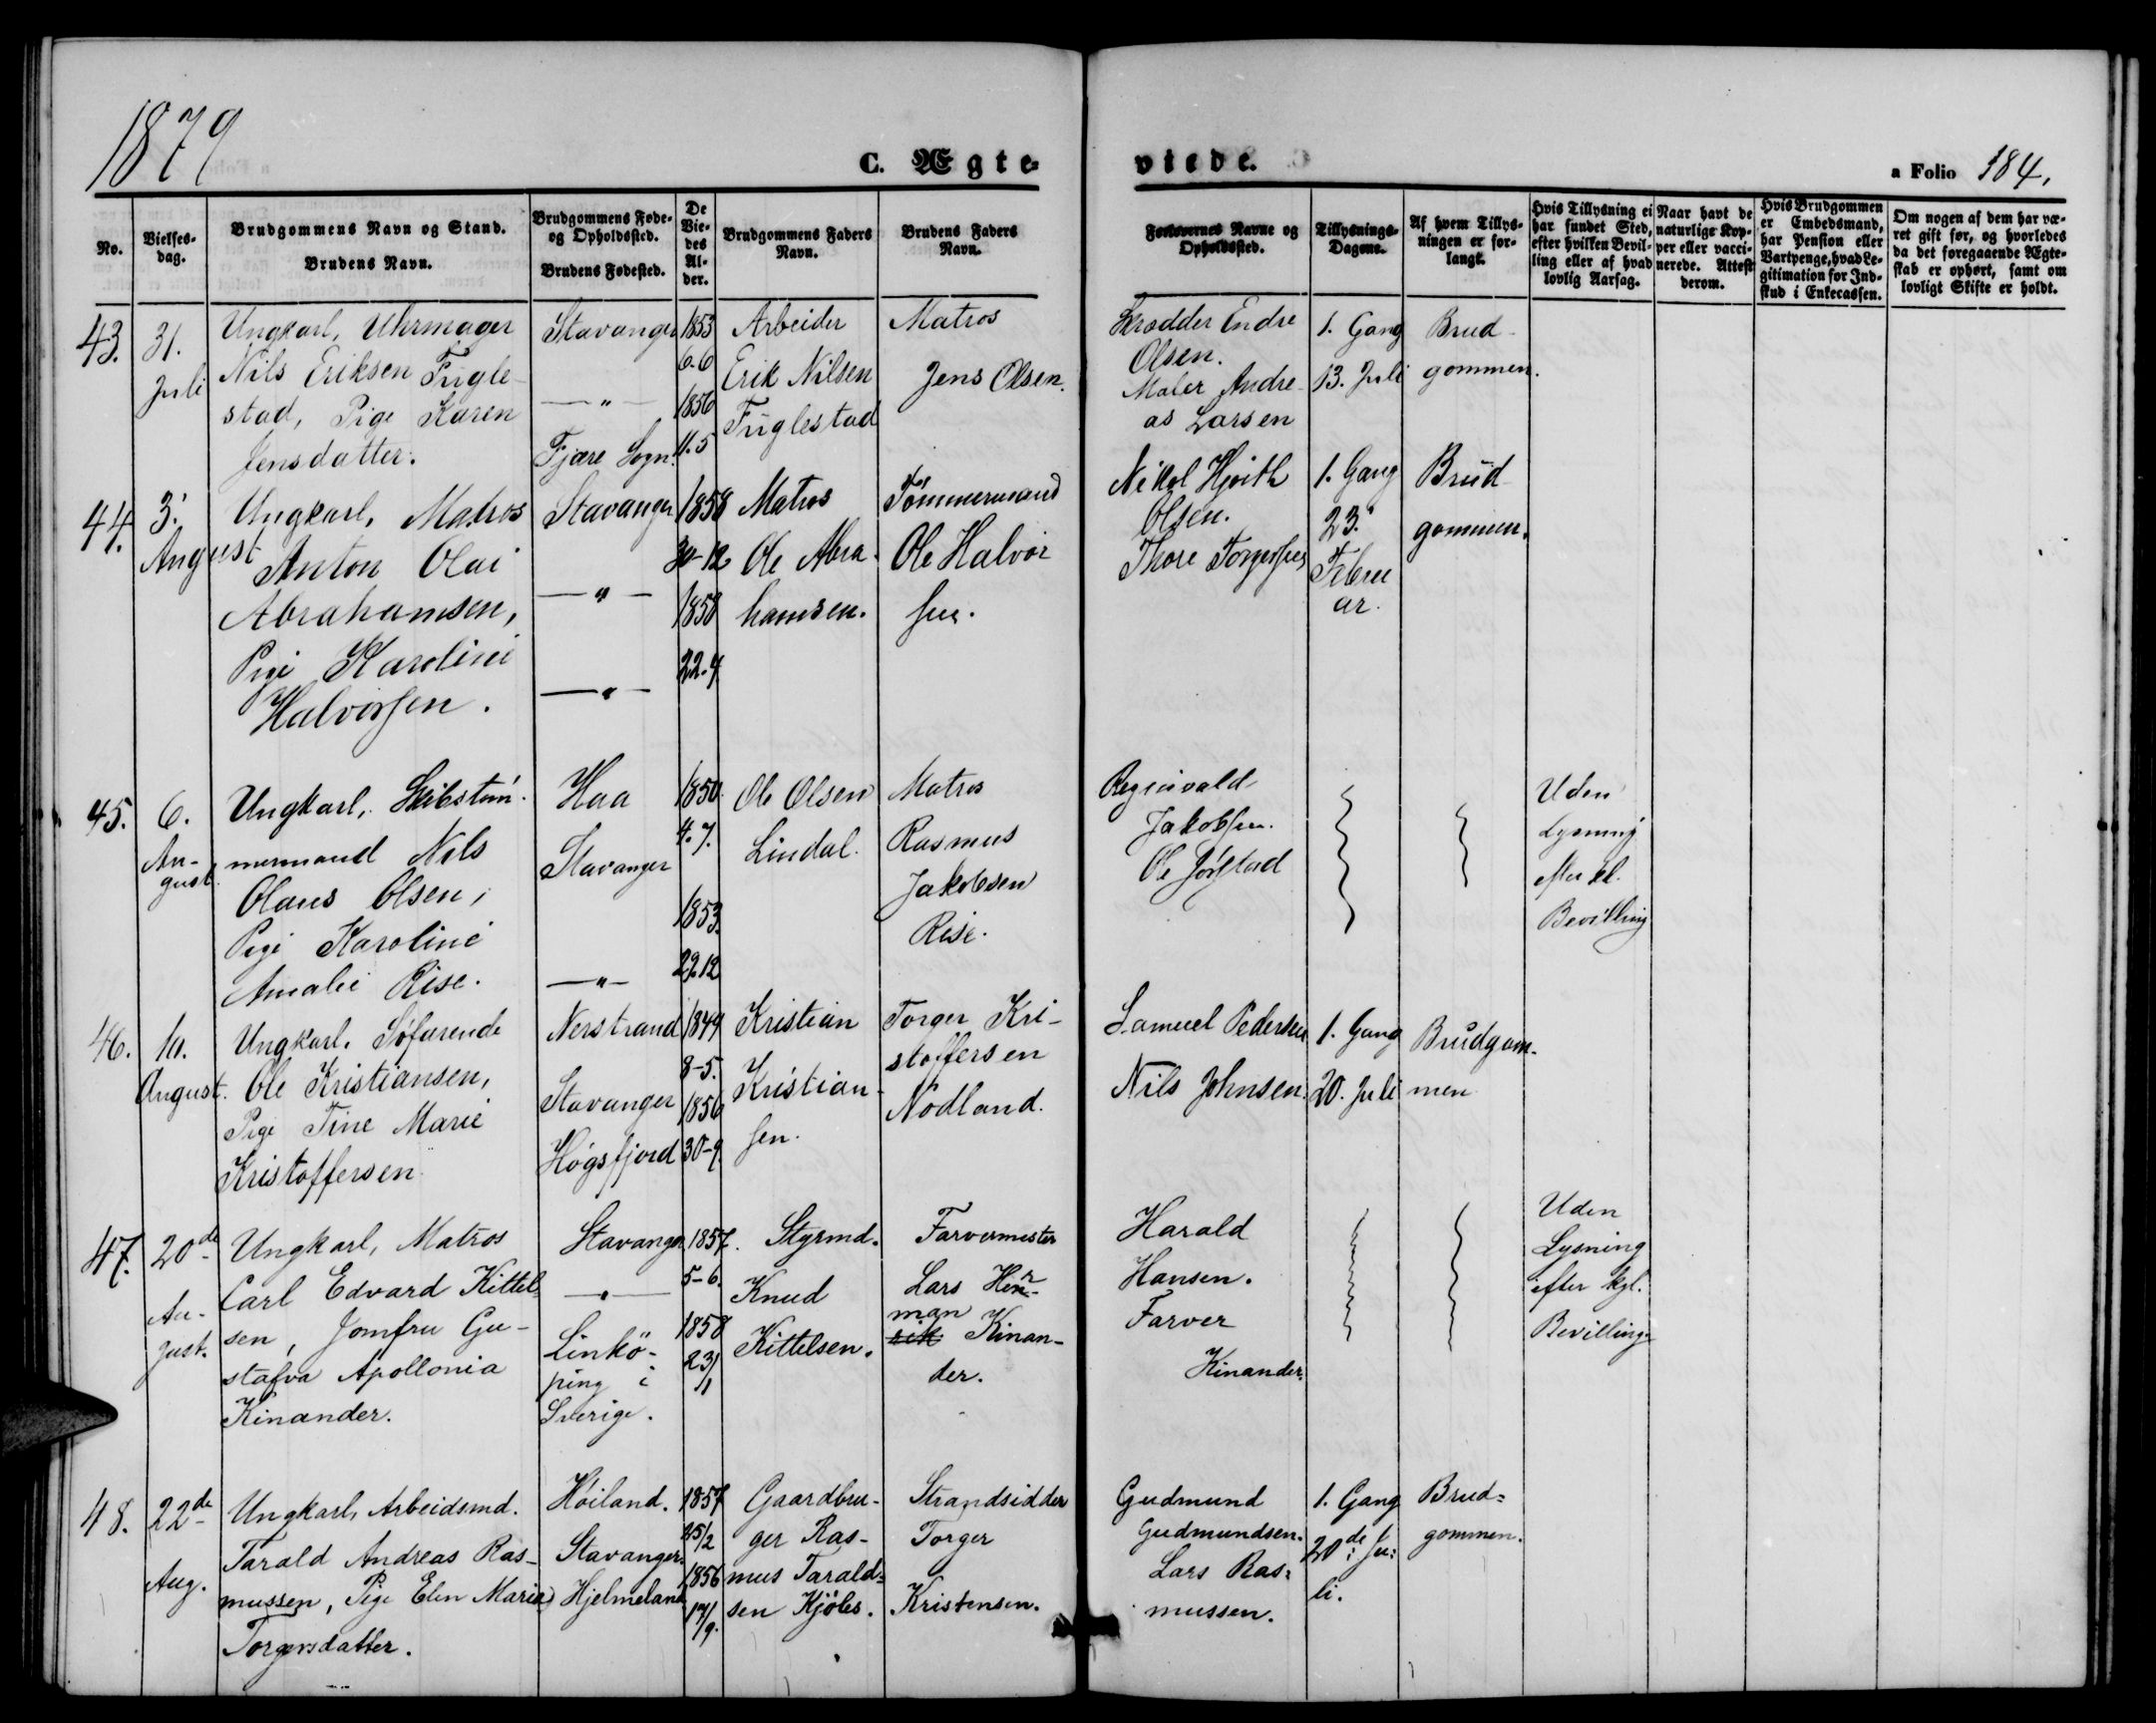 1879
C. Ægte-
viede.
a Folio 184.
No.
Vielses-
dag.
Brudgommens Navn og Stand.
Brudens Navn.
Brudgommens Føde-
og Opholdssted.
Brudens Fødested.
De
Vie-
des
Al-
der.
Brudgommens Faders
Navn.
Brudens Faders
Navn.
Forlovernes Navne og
Opholdssted.
Tillysnings-
Dagene.
Af hvem Tillys-
ningen er for-
langt.
Hvis Tillysning ei
har fundet Sted,
efter hvilken Bevil-
ling eller af hvad
lovlig Aarsag.
Naar havt de
naturlige Kop-
per eller vacci-
nerede. Attest
derom.
Hvis Brudgommen
er Embedsmand,
har Pension eller
Vartpenge, hvad Le-
gitimation for Ind-
skud i Enkecassen.
Om nogen af dem har væ-
ret gift før, og hvorledes
da det foregaaende Ægte-
skab er ophørt, samt om
lovligt Skifte er holdt.
43.
31.
Juli
Ungkarl, Uhrmager
Nils Eriksen Fugle-
stad, Pige Karen
Jensdatter.
Stavanger
—"—
Fjære Sogn.
1853
6.6
1856
11.5
Arbeider
Erik Nilsen
Fuglestad
Matros
Jens Olsen.
Skrædder Endre
Olsen.
Maler Andre-
as Larsen
1. Gang
13. Juli
Brud-
gommen.
44.
3.
August
Ungkarl, Matros
Anton Olai
Abrahamsen,
Pige Karoline
Halvorsen.
Stavanger
—"—
—"—
1858
30-12
1858
22.4
Matros
Ole Abra-
hamsen.
Tömmermand
Ole Halvor
sen.
Nikol Hjorth
Olsen.
Thore Torgersen
1. Gang
23.
Febru
ar.
Brud
gommen.
45.
6.
Au-
gust.
Ungkarl, Skibstöm-
mermand Nils
Olaus Olsen,
Pige Karoline
Amalie Rise.
Haa
Stavanger
—"—
1850.
4.7.
1853.
29.12
Ole Olsen
Lindal.
Matros
Rasmus
Jakobsen
Rise.
Reginvald
Jakobsen.
Ole Jørstad
Uden
Lysning
efter kl.
Bevilling
46.
10.
August.
Ungkarl, Söfarende
Ole Kristiansen,
Pige Tine Marie
Kristoffersen
Nerstrand
Stavanger
Høgsfjord
1849
8-5.
1856
30-9.
Kristian
Kristian-
sen.
Torger Kri-
stoffersen
Nodland.
Samuel Pedersen
Nils Johnsen.
1. Gang
20. Juli
Brudgom-
men
47.
20de
Au-
gust.
Ungkarl, Matros
Carl Edvard Kittel-
sen, Jomfru Gu-
stafva Apollonia
Kinander.
Stavanger
—"—
Linkö-
ping i
Sverige.
1857.
5-6.
1858
23/1
Styrmd.
Knud
Kittelsen.
Farvermester
Lars Her-
man Kinan-
der.
Harald
Hansen.
Farver
Kinander.
Uden
Lysning
efter kgl.
Bevilling
48.
22de
Aug.
Ungkarl, Arbeidsmd.
Tarald Andreas Ras-
mussen, Pige Elen Marie
Torgersdatter.
Høiland.
Stavanger.
Hjelmeland
1857
25/2
1856
17/9.
Gaardbru-
ger Ras-
mus Tarald-
sen Kjöles.
Strandsidder
Torger
Kristensen.
Gudmund
Gudmundsen.
Lars Ras-
mussen.
1. Gang
20de Ju-
li.
Brud-
gommen.